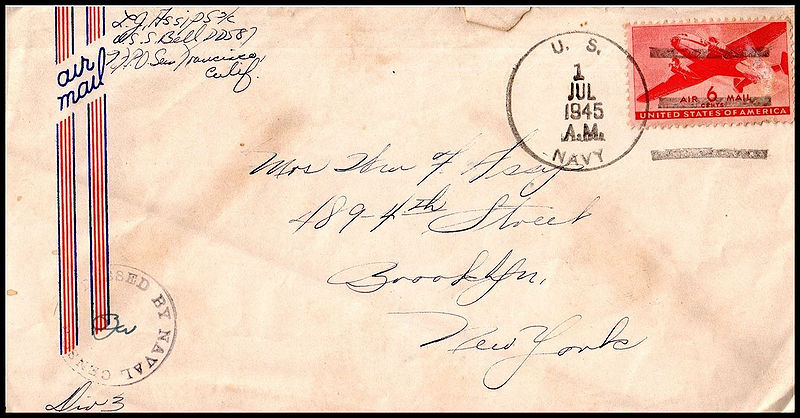 L. J. Assip S 2/c
U.S.S Bell DD587
F.P.O San Francisco,
Calif.
air
mail
U. S.
1
JUL
1945
A.M.
NAVY
AIR 6 MAIL
CENTS
UNITED STATES OF AMERICA
Mrs Wm F. Assip
489-4th Street
Brooklyn,
New York
SSED BY NAVAL CENS
Div 3